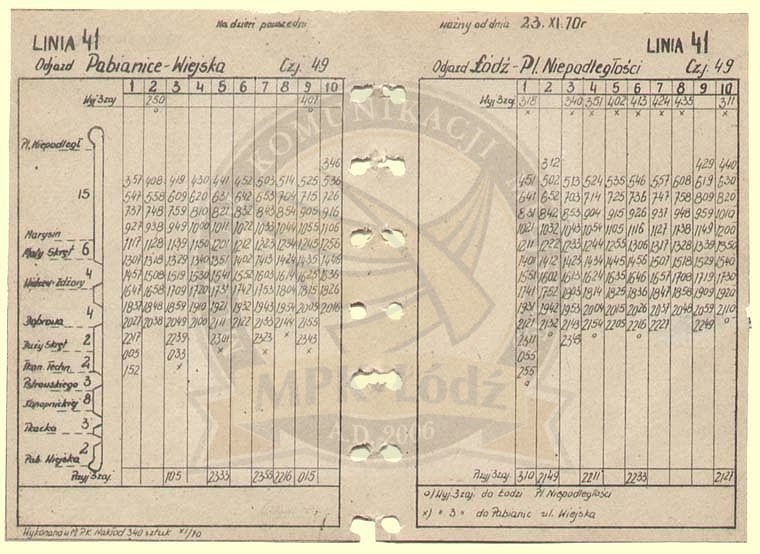 Na dzień powszedni
ważny od dnia 23. XI. 70 r
LINIA 41
LINIA 41
Odjazd Pabianice-Wiejska Czj. 49
Odjazd Łódź-Pl. Niepodległości Czj. 49
1 2 3 4 5 6 7 8 9 10
1 2 3 4 5 6 7 8 9 10
Wyj 3zaj 250 401
Wyj 3zaj 318 340 351 402 413 424 435 311
o o
x x x x x x x x
Pl. Niepodległ
346
312 429 440
15
351 408 419 430 441 452 503 514 525 536
451 502 513 524 535 546 557 608 619 630
547 558 609 620 631 642 653 704 715 726
641 652 703 714 725 736 747 758 809 820
737 748 759 810 821 832 843 854 905 916
831 842 853 904 915 926 937 948 959 1010
927 938 949 1000 1011 1022 1033 1044 1055 1106
1021 1032 1043 1054 1105 1116 1127 1138 1149 1200
Marysin
Mały Skręt 6
1117 1128 1139 1150 1201 1212 1223 1234 1245 1256
1211 1222 1233 1244 1255 1306 1317 1328 1339 1350
1307 1318 1329 1340 1351 1402 1413 1424 1435 1446
1401 1412 1423 1434 1445 1456 1507 1518 1529 1540
4
1457 1508 1519 1530 1541 1552 1603 1614 1625 1636
1551 1602 1613 1624 1635 1646 1657 1708 1719 1730
1647 1658 1709 1720 1731 1742 1753 1804 1815 1826
1741 1752 1803 1814 1825 1836 1847 1858 1909 1920
4
1837 1848 1859 1910 1921 1932 1943 1954 2005 2016
1931 1942 1953 2004 2015 2026 2037 2048 2059 2110
Dąbrowa
2027 2038 2049 2100 2111 2122 2133 2144 2155
2121 2132 2143 2154 2205 2216 2227 2249
Duży Skręt 2
2217 2239 2301 2323 2343
2311 2343
005 033
055
Tkan. Techn. 2
152
255
Ostrowskiego 3
8
Tkacka 3
Pab. Wiejska 2
Przyj 3zaj 105 2333 2355 2216 015
Przyj 3zaj 310 2149 2211 2233 2121
o) Wyj. 3zaj. do Łodzi Pl. Niepodległości
x) " 3 " do Pabianic ul. Wiejska
Wykonano w MPK. Nakład 340 sztuk XI/70
KOMUNIKACJI
MPK-Łódź
A.D. 2006